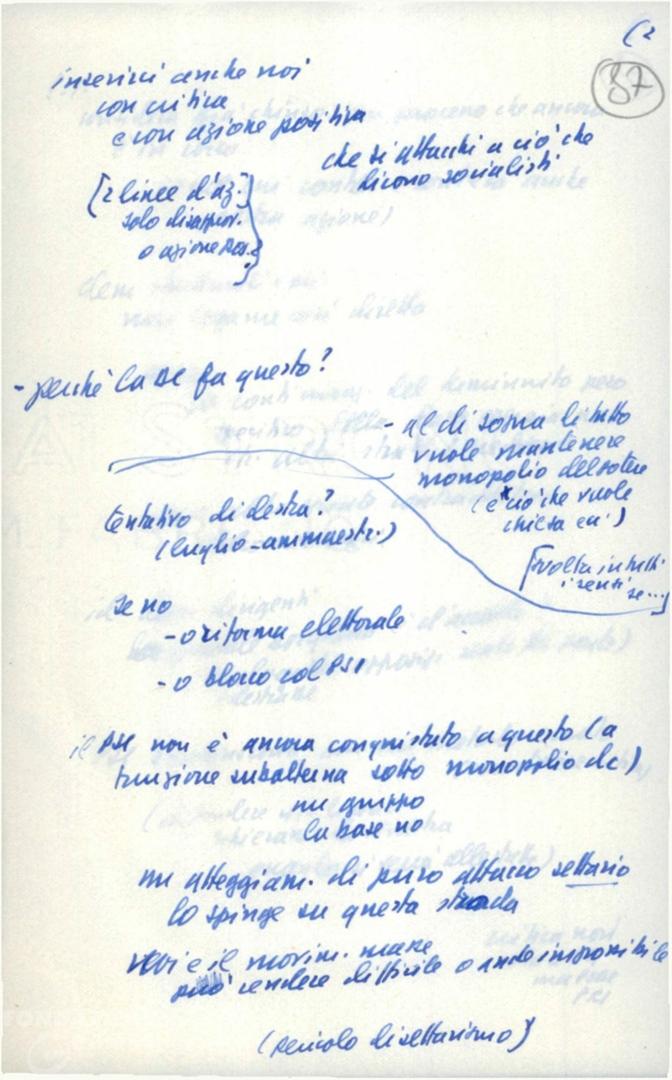 (2
87
inserirci anche noi
con critica
e con azione positiva
che si attacchi a ciò che
dicono socialisti
[2 linee d'az]
solo disapprov.
o azione pos.]
- perché la DC fa questo?
- al di sopra di tutto
vuole mantenere
monopolio del potere
(è ciò che vuole
chiesa ecc)
tentativo di destra?
(luglio-ammaestr.)
[svolta in tutti
i sensi
se...]
se no
- o riforma elettorale
- o blocco col PSI
il PSI non è ancora conquistato a questo (a
funzione subalterna sotto monopolio dc)
un gruppo
la base no
un atteggiam. di puro attacco settario
lo spinge su questa strada
noi e il movim. masse
può rendere difficile o anche impossibile
(pericolo di settarismo)